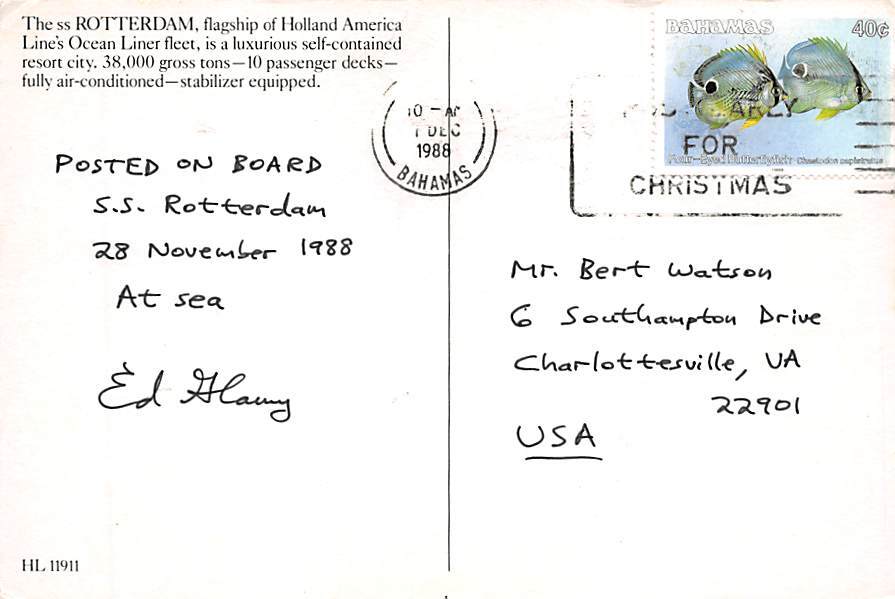 The ss ROTTERDAM, flagship of Holland America
Line's Ocean Liner fleet, is a luxurious self-contained
resort city. 38,000 gross tons—10 passenger decks—
fully air-conditioned—stabilizer equipped.
POSTED ON BOARD
S.S. Rotterdam
28 November 1988
At sea
Ed
HL 11911
10 - AM
1 DEC
1988
BAHAMAS
BAHAMAS 40¢
Four-Eyed Butterflyfish Chaetodon capistratus
EARLY
FOR
CHRISTMAS
Mr. Bert Watson
6 Southampton Drive
Charlottesville, VA
22901
USA